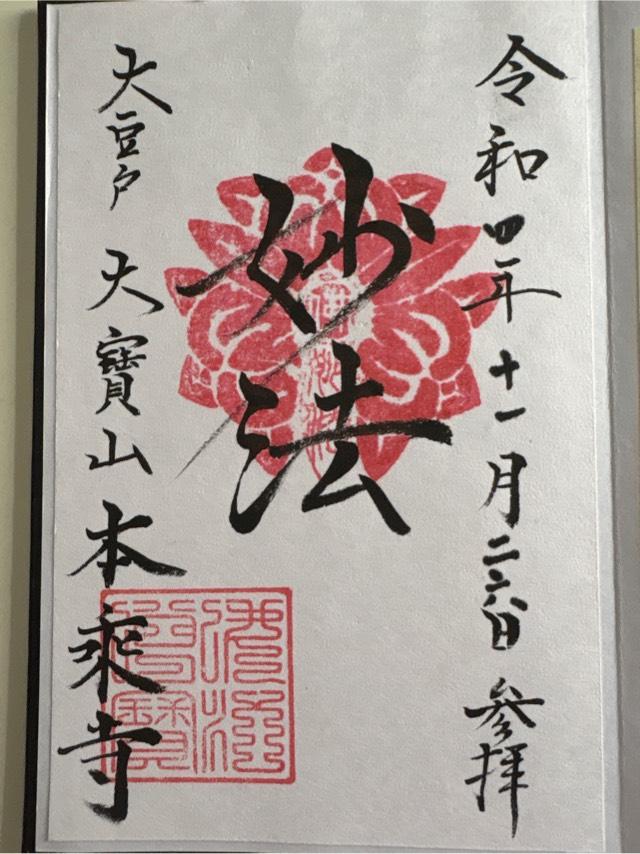 令和四年十一月二六日 参拝
妙法
大豆戸 大寳山 本乘寺